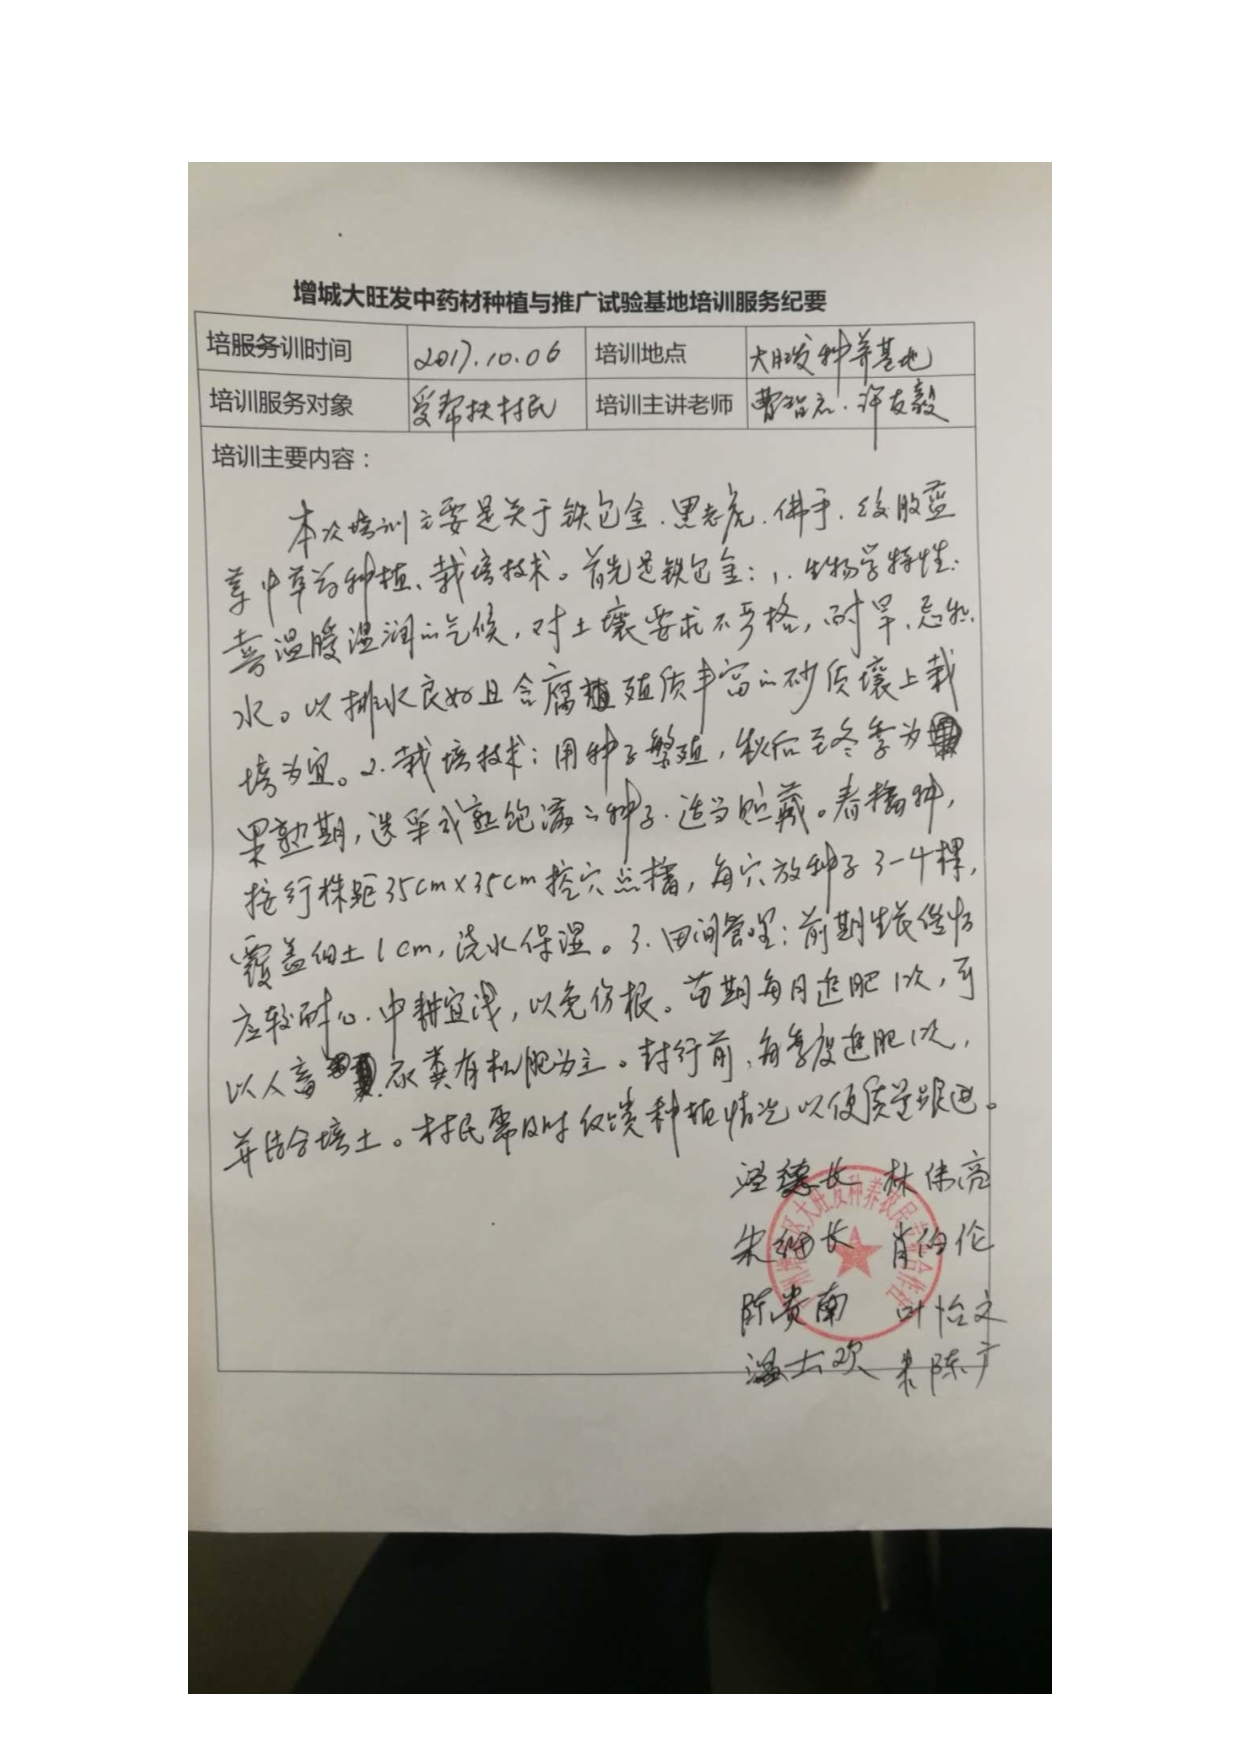 增城大旺发中药材种植与推广试验基地培训服务纪要
培服务训时间 2017.10.06 培训地点 大旺发种养基地
培训服务对象 受帮扶村民 培训主讲老师 曹智 许友毅
培训主要内容：
本次培训主要是关于铁包金、黑老虎、佛手、绞股蓝
等中草药种植、栽培技术。首先是铁包金：1. 生物学特性：
喜温暖湿润的气候，对土壤要求不严格，耐旱、忌
水。以排水良好且含腐殖质丰富的砂质壤上栽
培为宜。2.栽培技术：用种子繁殖，秋后至冬季为
果熟期，选采成熟饱满的种子，适当贮藏。春播种，
按行株距35cm×35cm挖穴点播，每穴放种子3-4棵，
覆盖细土1cm，浇水保湿。3.田间管理：前期生长
应较耐心，中耕宜浅，以免伤根。苗期每月追肥1次，可
以人畜 粪有机肥为主。封行前，每季度追肥1次，
并结合培土。村民需及时反馈种植情况以便质量跟进。
温德长 林伟亮
朱 长 肖伯伦
陈贵南 叶怡文
温士欢 陈
大旺发种养农民专业合作社